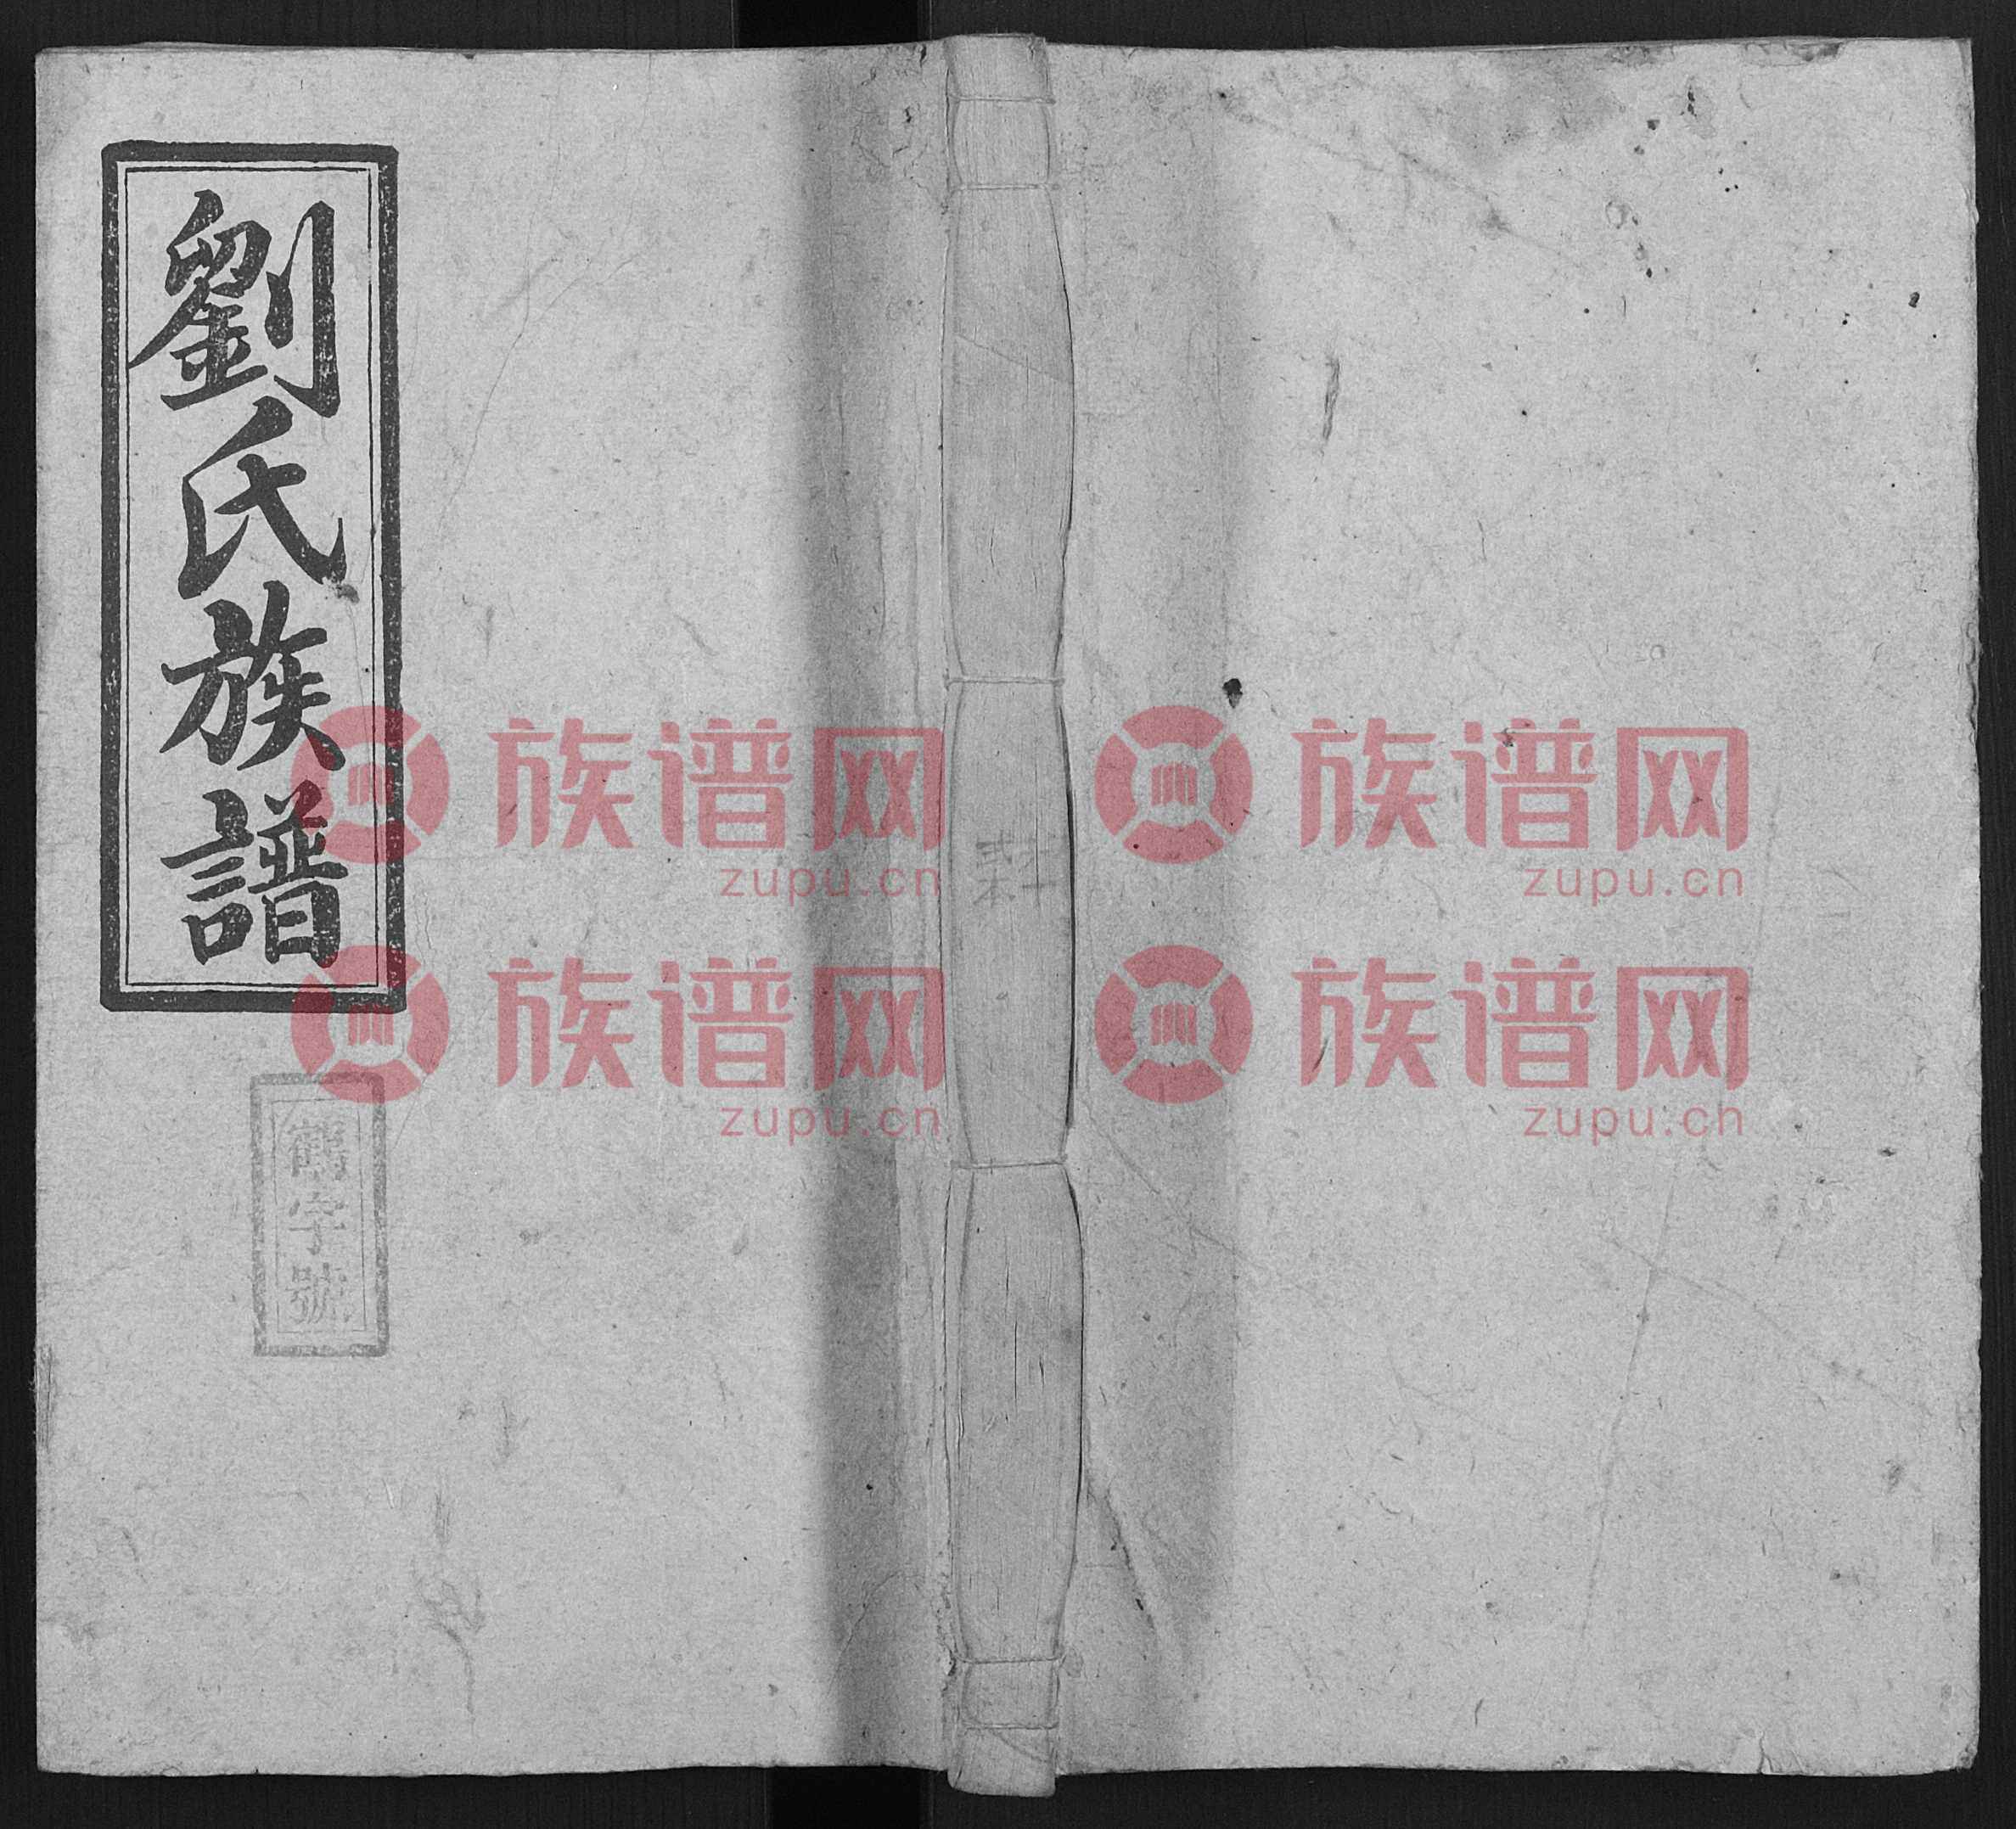 劉氏族譜
鶴字號
族谱网
zupu.cn
族谱网
zupu.cn
族谱网
zupu.cn
族谱网
zupu.cn